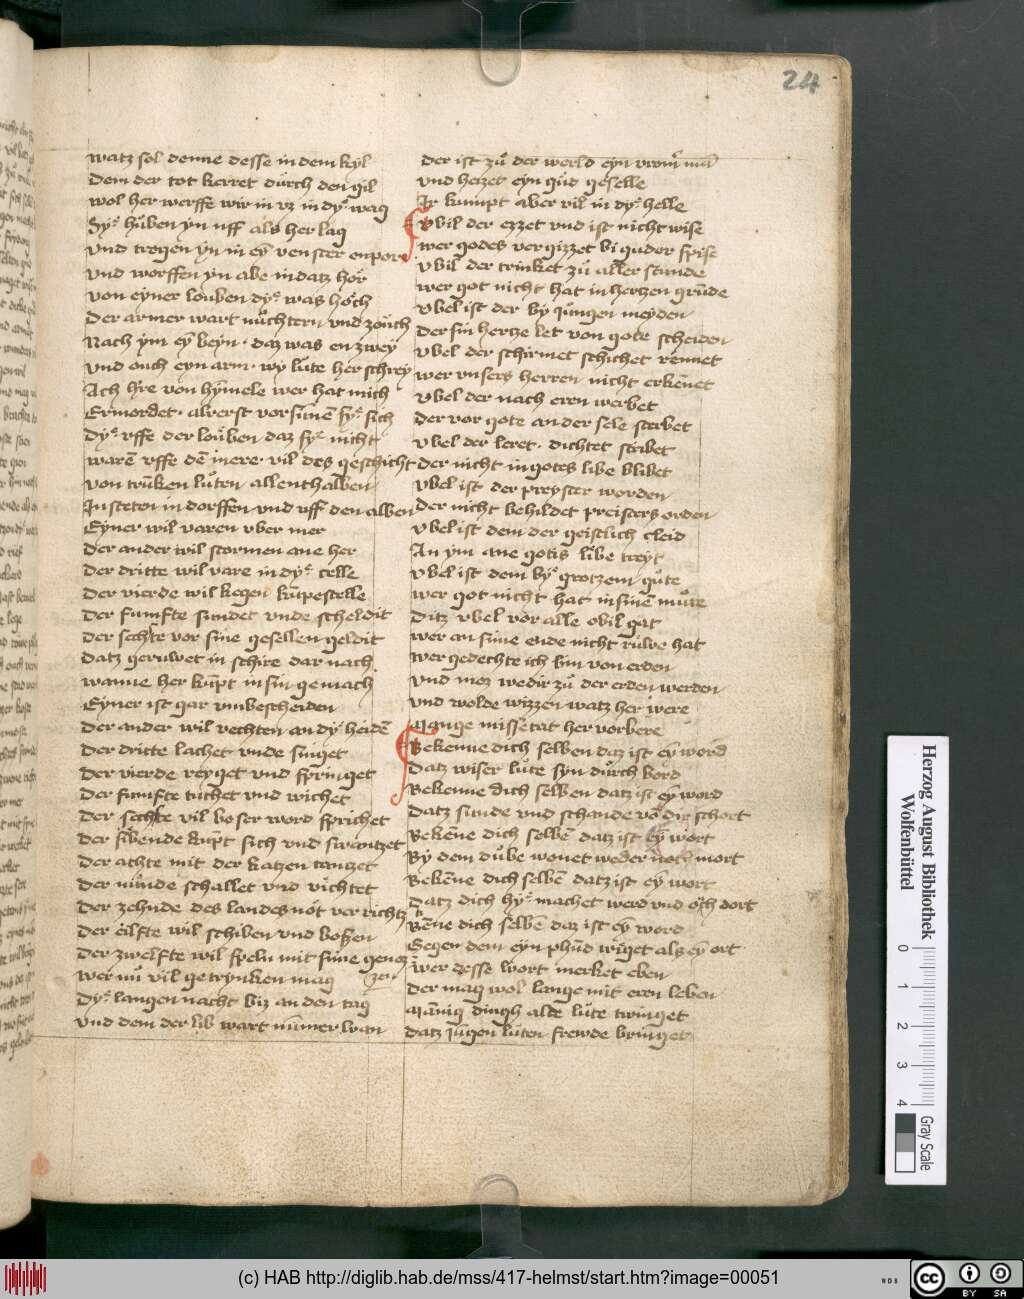 24
watz sol denne desse in dem kyl
Dem der tot kerret durch den gil
wol her werffe wir in vz in dy wag
Sy huben yn uff als her lag
vnd tregen yn in ey venster enpor
vnd worffen yn abe in datz hor
von eyner louben dy was hoch
Der armer wart nuchtern vnd zouch
Nach ym ey beyn · daz was en zwey
vnd ouch eyn arm · wy lute her schrey
Ach hre von hymele wer hat mich
Ermordet · alrerst vorsunē sy sich
Dy vffe der louben daz sy nicht
warē vffe dē mere · vil des geschicht
von trūken luten allenthalben
In steten in dorffen vnd uff den alben
Eyner wil varen vber mer
Der ander wil stormen ane her
Der dritte wil vare in dy celle
Der vierde wil kegen kūpestelle
Der fumfte sundet vnde scheldit
Der sechste vor sine gesellen geldit
Datz geruwet in schire dar nach
wanne her kūpt in sin gemach
Eyner ist gar vmbescheiden
Der ander wil vechten an dy heidē
Der dritte lachet vnde singet
Der vierde reyget vnd springet
Der fumfte tuchet vnd wichet
Der sechste vil boser word sprichet
Der sibende kūpt sich vnd swantzet
Der achte mit der katzen tantzet
Der nunde schallet vnd vichtet
Der zehnde des landes not vorrichtz
Der eilfte wil schiben vnd boßen
Der zwelfte wil speln mit sine genoz
zen
wer nu vil getrynken mag
Dy langen nacht biz an den tag
vnd dem der lib wart nummer wan
der ist zu der werld eyn
vnd heizet eyn gud geselle
Ir kumpt aber vil in dy helle
Vbil der ezzet vnd ist nicht wise
wer godes vergizzet bi guder spise
Vbil der trinket zu aller stunde
wer got nicht hat in hertzen grunde
Vbel ist der by jungen meyden
Der sin hertze let von gote scheiden
Vbel der schirmet schichet rennet
wer vnsers herren nicht erkēnet
Vbel der nach eren werbet
Der vor gote an der sele sterbet
Vbel der leret · dichtet scribet
der nicht in gotes libe blibet
Vbel ist der preyster worden
Der nicht behildet preisters orden
Vbel ist dem der geistlich cleid
An ym ane gotis libe treyt
Vbel ist dem by grotzem gute
wer got nicht hat in sinē mute
Ditz vbel vor alle obil gat
wer an sime ende nicht ruwe hat
wer gedechte ich bin von erden
vnd moz wedir zu der erden werden
vnd wolde wizzen watz her were
Mange missetat her vorbere
Bekenne dich selben daz ist ey word
Datz wiser lute syn durch bord
Bekenne dich selben datz ist ey word
Datz sunde vnd schande vō dir schort
Bekēne dich selbē datz ist ey wort
By dem dube wonet weder noch mort
Bekēne dich selbē datz ist ey wort
Datz dich hy machet werd vnd och dort
Bekēne dich selbē daz ist ey word
Gegen dem eyn phūd wiget als ey ort
wer desse wort merket eben
Der mag wol lange mit eren leben
Mānig dingh alde lute twinget
Datz jugen luten frewde bringet
Herzog August Bibliothek
Wolfenbüttel
0 1 2 3 4
Gray Scale
(c) HAB http://diglib.hab.de/mss/417-helmst/start.htm?image=00051
WDB
cc BY SA